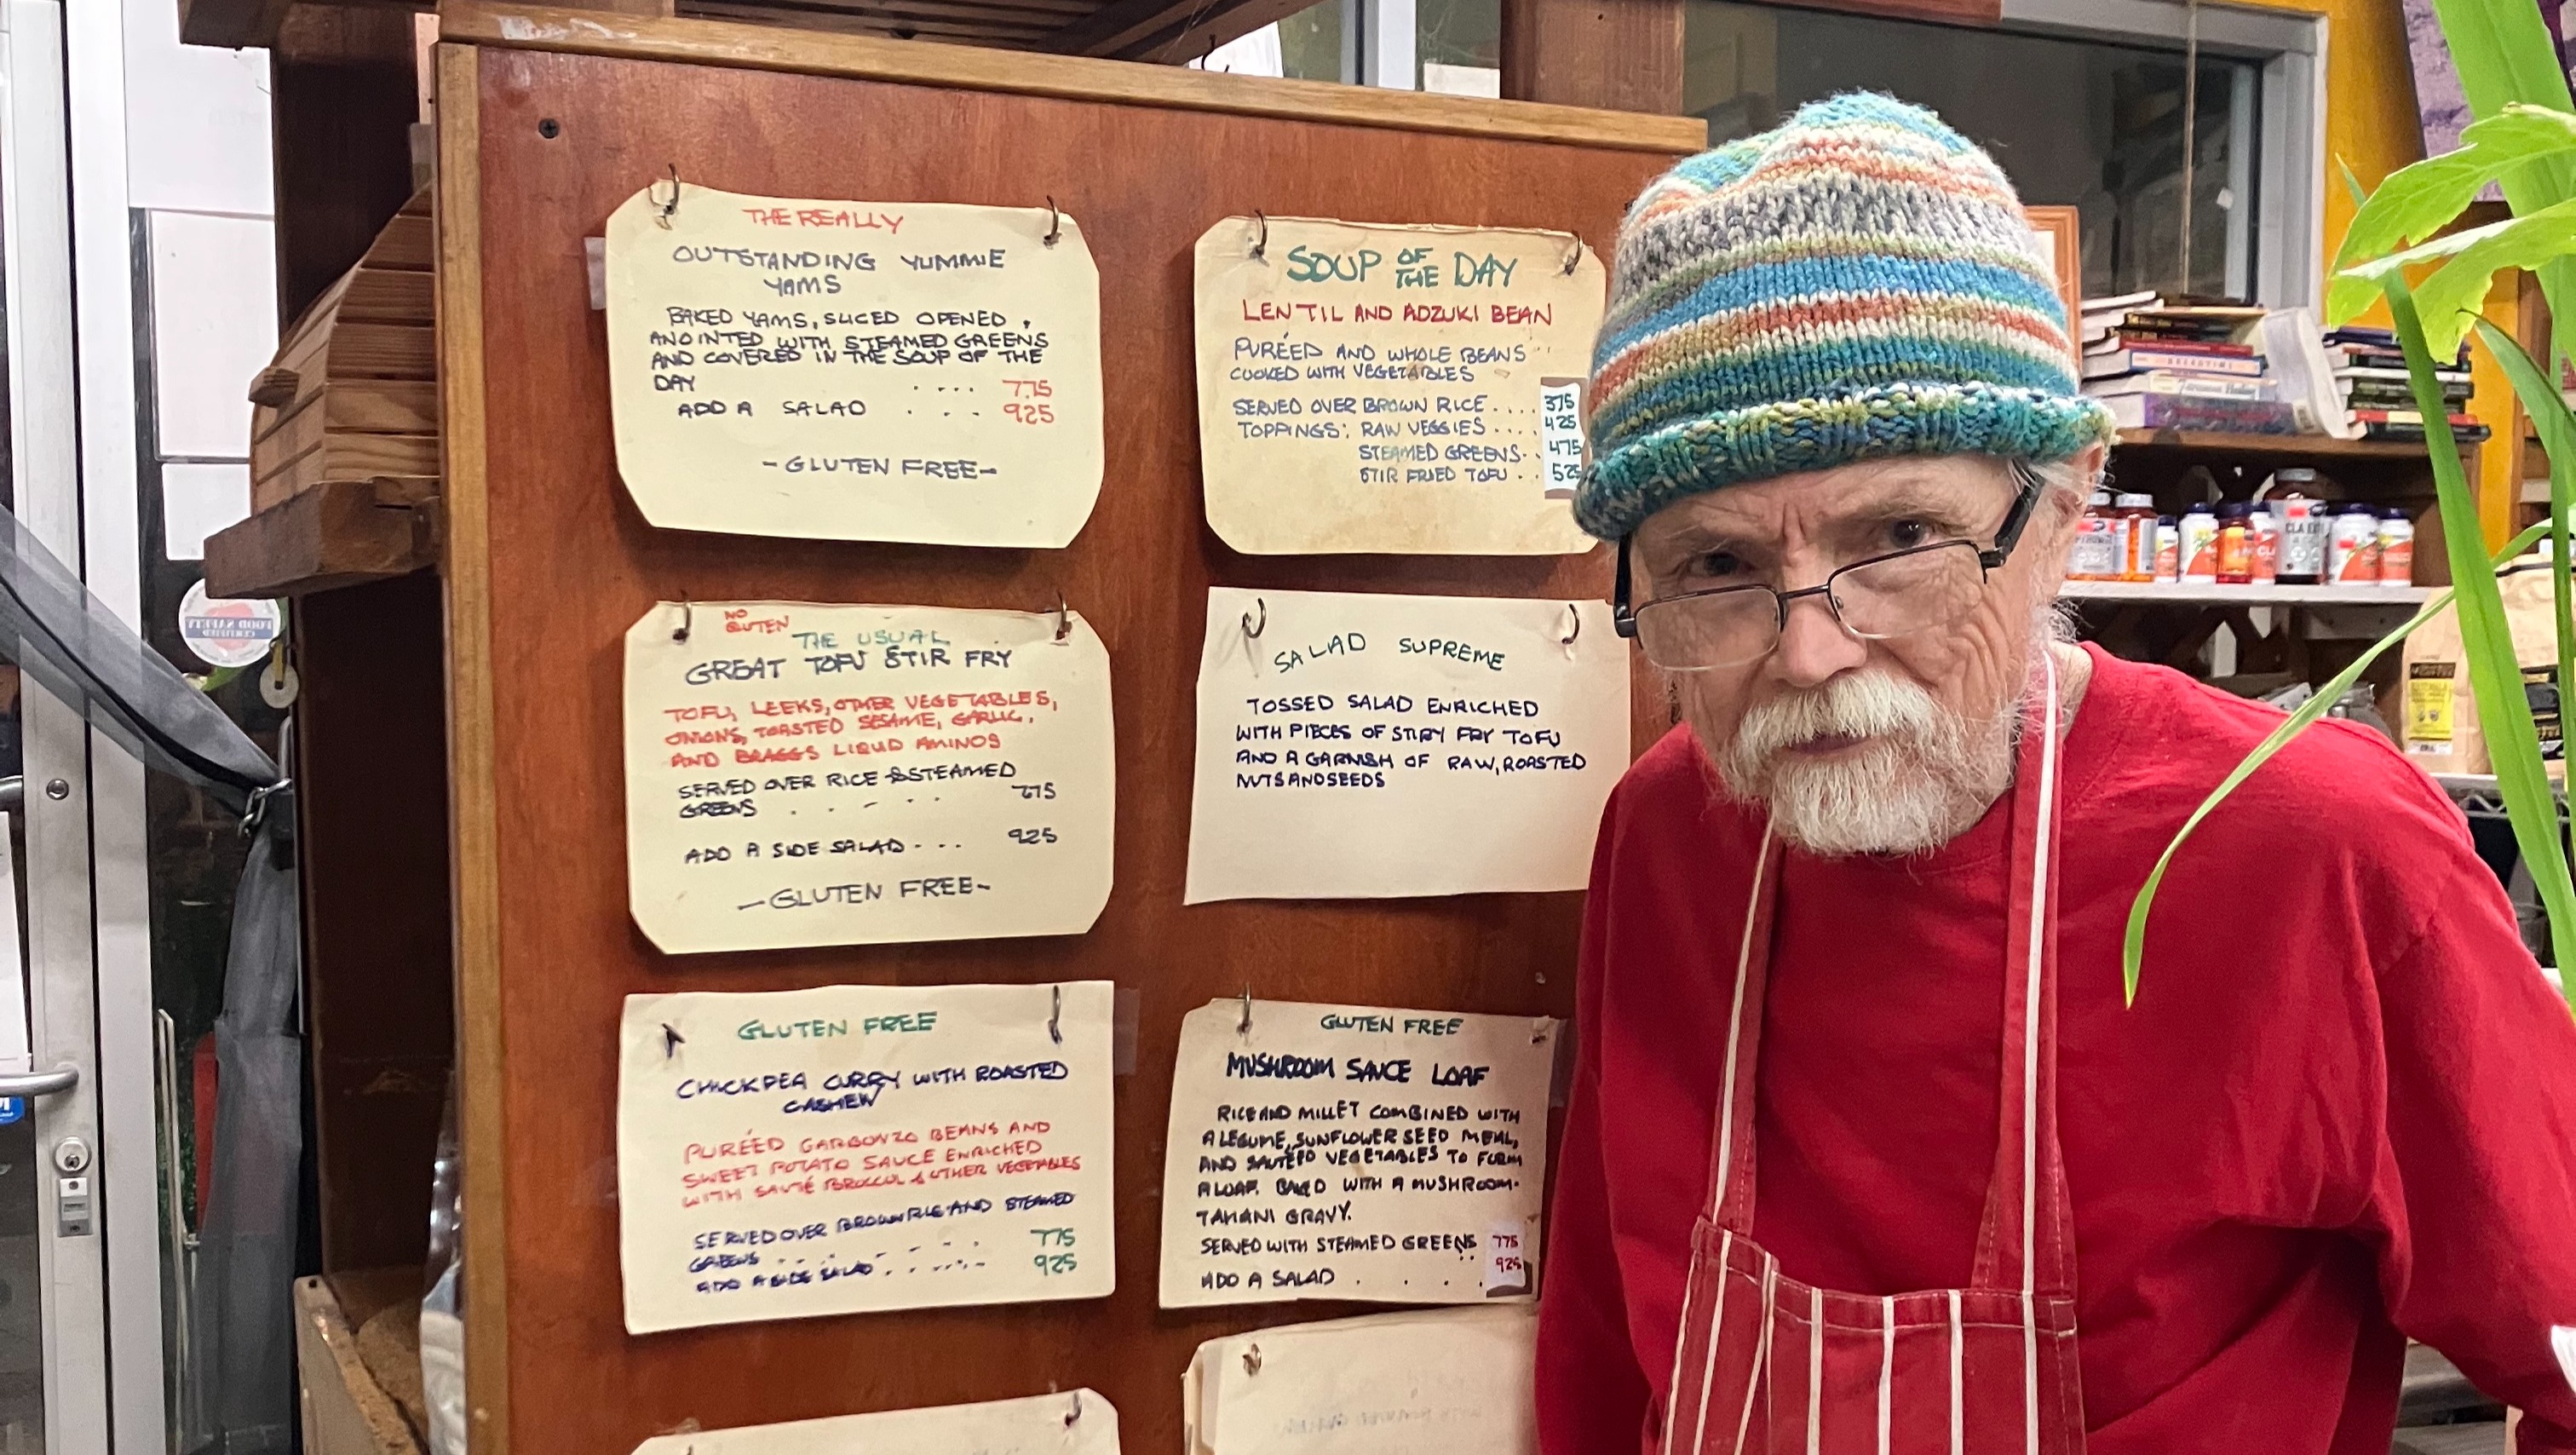 THE REALLY
OUTSTANDING YUMMIE
YAMS
BAKED YAMS, SLICED OPENED,
ANOINTED WITH STEAMED GREENS
AND COVERED IN THE SOUP OF THE
DAY . . . . 7.75
ADD A SALAD . . . . 925
-GLUTEN FREE-
SOUP OF THE DAY
LENTIL AND ADZUKI BEAN
PURÉED AND WHOLE BEANS
COOKED WITH VEGETABLES
SERVED OVER BROWN RICE.... 375
TOPPINGS: RAW VEGGIES .... 425
STEAMED GREENS.. 475
STIR FRIED TOFU .. 525
NO
GLUTEN
THE USUAL
GREAT TOFU STIR FRY
TOFU, LEEKS, OTHER VEGETABLES,
ONIONS, TOASTED SESAME, GARLIC,
AND BRAGGS LIQUID AMINOS
SERVED OVER RICE & STEAMED
GREENS . . - . . 775
ADD A SIDE SALAD . . . . 925
-GLUTEN FREE-
SALAD SUPREME
TOSSED SALAD ENRICHED
WITH PIECES OF STIRY FRY TOFU
AND A GARNISH OF RAW, ROASTED
NUTS AND SEEDS
GLUTEN FREE
CHICKPEA CURRY WITH ROASTED
CASHEW
PURÉED GARBONZO BEANS AND
SWEET POTATO SAUCE ENRICHED
WITH SAUTÉ BROCCOLI & OTHER VEGETABLES
SERVED OVER BROWN RICE AND STEAMED
GREENS . . . . . . 775
ADD A SIDE SALAD . . . . . . 925
GLUTEN FREE
MUSHROOM SAUCE LOAF
RICE AND MILLET COMBINED WITH
A LEGUME, SUNFLOWER SEED MEAL,
AND SAUTÉED VEGETABLES TO FORM
A LOAF. BAKED WITH A MUSHROOM-
TAHANI GRAVY.
SERVED WITH STEAMED GREENS .. 775
ADD A SALAD . . . . 925
FOOD SAFETY
CERTIFIED
CLA